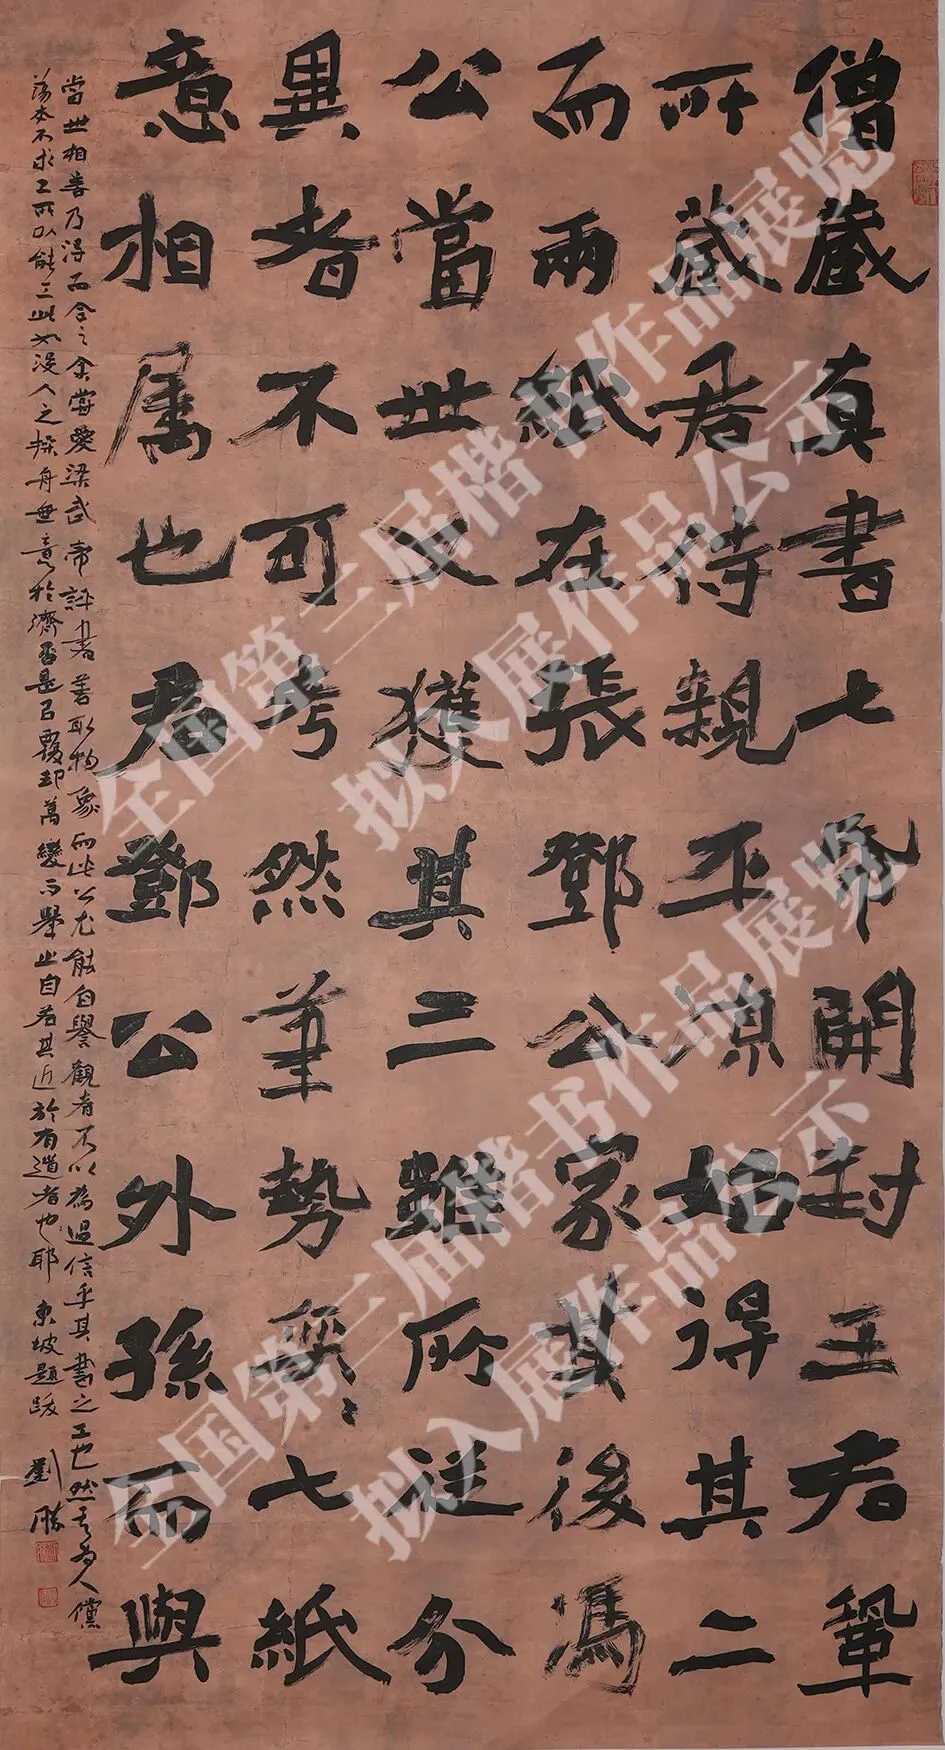 僧藏真書七帋開封王君鞏
所藏君侍親平凉始得其二
而兩紙在張鄧公家其後馮
公當世又獲其三雖所從分
異者不可考然筆勢奕〻七紙
意相属也君鄧公外孫而與
當世相善乃得而合之余嘗愛梁武帝評書善取物象而此公尤能自譽觀者不以為過信乎其書之工也然其為人儻
蕩本不求工所以能工此如沒人之操舟無意於濟否是以覆却萬變而舉止自若其近於有道者也耶 東坡題跋 劉勝
全国第三届楷书作品展览
拟入展作品公示
全国第三届楷书作品展览
拟入展作品公示